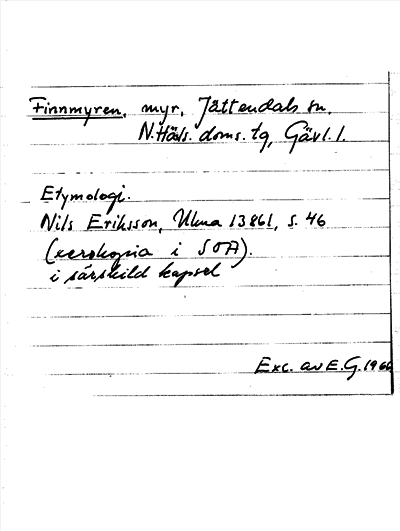 Finnmyren, myr, Jättendals sn.
N.Häls. doms. tg, Gävl. l.
Etymologi.
Nils Eriksson, Ulma 13861, s. 46
(xerokopia i SOA).
i särskild kapsel
Exc. av E.G. 1966